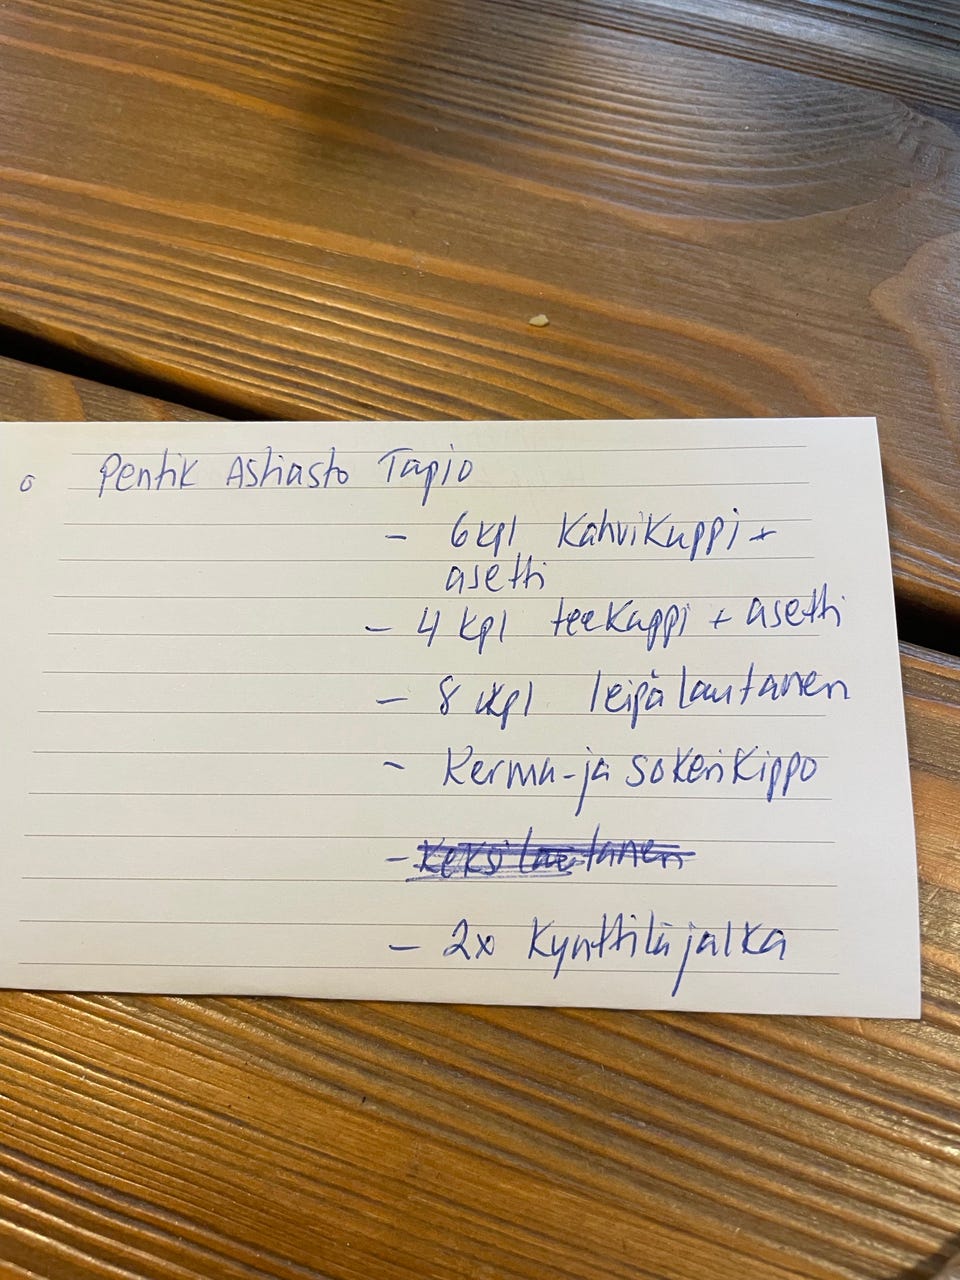 o Pentik Astiasto Tapio
- 6 kpl Kahvikuppi +
asetti
- 4 kpl teekuppi + asetti
- 8 kpl leipälautanen
- Kerma-ja sokerikippo
- Keksilautanen
- 2x Kynttiläjalka